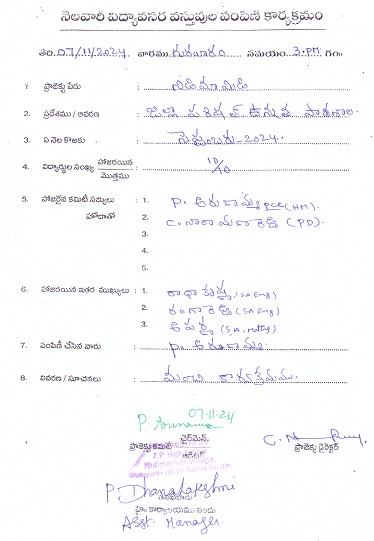 నెలవారీ విద్యావసర వస్తువుల పంపిణీ కార్యక్రమం
తేది: 07/11/2024 వారము గురువారం సమయం 3.PM గం॥
1. ప్రాజెక్టు పేరు : నిడిమామిడి
2. ప్రదేశము / ఆవరణ : జిల్లా పరిషత్ ఉన్నత పాఠశాల
3. ఏ నెల కొరకు : సెప్టెంబరు-2024.
4. విద్యార్థుల సంఖ్య హాజరయిన 10
మొత్తము 10
5. హాజరైన కమిటీ సభ్యులు : 1. P. అరుణమ్మ PCC (HM)
హోదాతో 2. C. నారాయణ రెడ్డి (PD)
3.
4.
5.
6. హాజరయిన ఇతర ముఖ్యులు : 1. రాధాకృష్ణ (SA Eng)
2. రంగారెడ్డి (SA Eng)
3. అపర్ణ (S.A, Maths)
7. పంపిణీ చేసిన వారు : P. అరుణమ్మ
8. వివరణ / సూచనలు : మంచి కార్యక్రమము.
07-11-24
P. Arunamma
ప్రాజెక్టు కమిటీ ఛైర్మెన్,
ప్రాజెక్టు డైరెక్టర్
Z.P. High
Nidimamidi Village,
P. Dhanalakshmi
హై కార్యాలయము నందు
Asst. Manager.